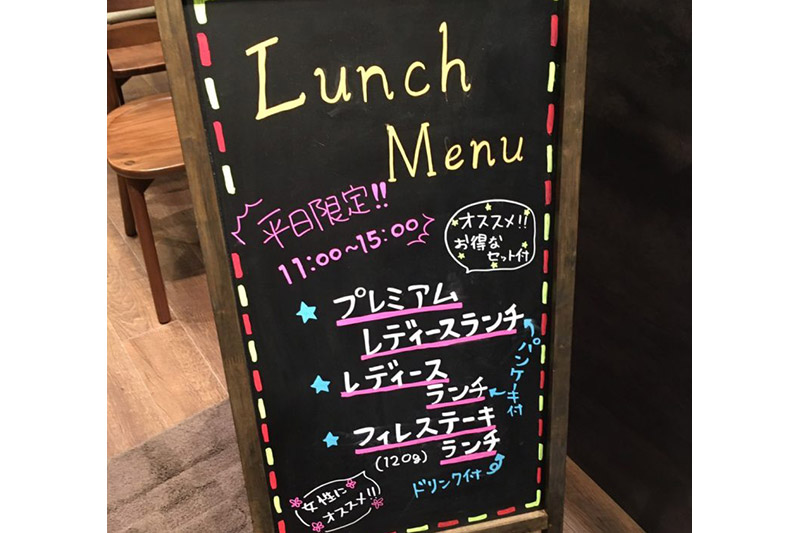 Lunch
Menu
平日限定!!
11:00~15:00
オススメ!!
お得な
セット付
プレミアム
レディースランチ
レディース
ランチ
パンケーキ付
フィレステーキ
(120g) ランチ
ドリンク付
女性に
オススメ!!